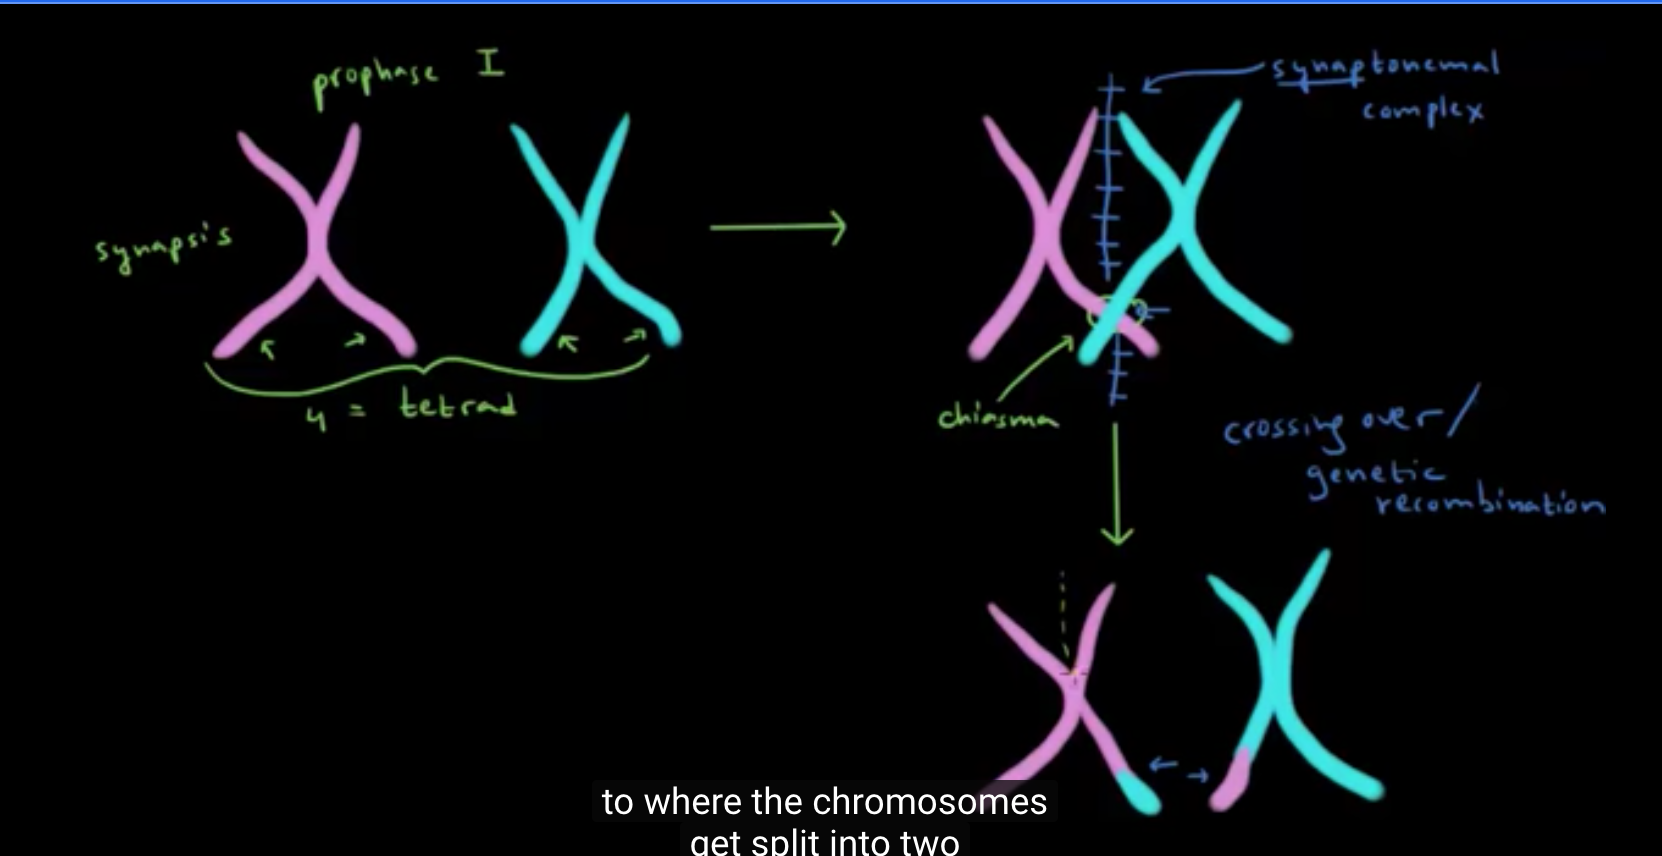 prophase I
synapsis
4 = tetrad
synaptonemal
complex
chiasma
crossing over/
genetic
recombination
to where the chromosomes
get split into two